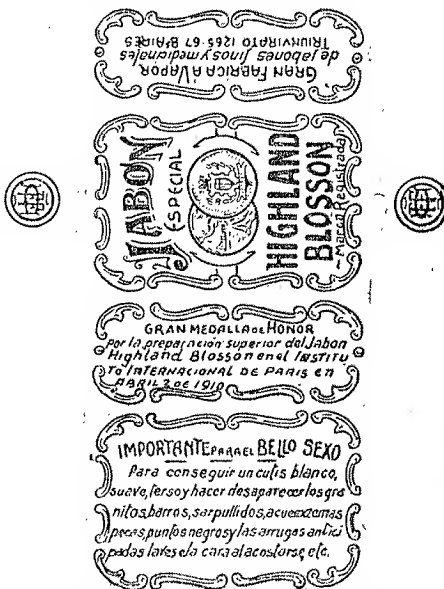 GRAN FABRICA A VAPOR
de jabones finos y medicinales
TRIUNVIRATO 1265-67 Bs AIRES
JABON
ESPECIAL
HIGHLAND
BLOSSON
Marca Registrada
GRAN MEDALLA DE HONOR
por la preparación superior del Jabon
Highland Blossón en el INSTITU
TO INTERNACIONAL DE PARIS en
ABRIL 2 de 1910
IMPORTANTE PARA EL BELLO SEXO
Para conseguir un cutis blanco,
suave, terso y hacer desaparecer los gra
nitos, barros, sarpullidos,
pecas, puntos negros y las arrugas antici
padas la cara al acostarse, etc.